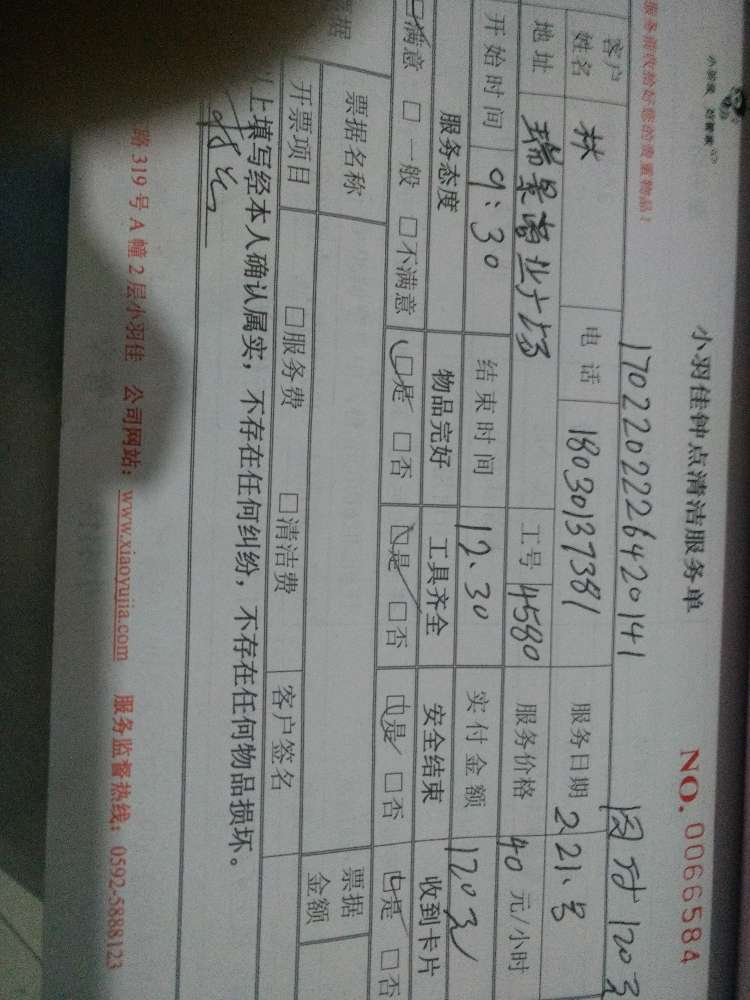 小羽佳 好管家
小羽佳钟点清洁服务单
NO. 0066584
服务前收拾好您的贵重物品!
1702202226420141
120元
客户姓名 林 电话 18030137381 服务日期 2 21号
地址 瑞景商业广场 工号 4580 服务价格 40 元/小时
开始时间 9:30 结束时间 12.30 实付金额 120元
服务态度 物品完好 工具齐全 安全结束 收到卡片
☑满意 □一般 □不满意 ☑是 □否 ☑是 □否 ☑是 □否 ☑是 □否
票据名称 票据金额
开票项目 □服务费 □清洁费 客户签名
上填写经本人确认属实，不存在任何纠纷，不存在任何物品损坏。
路 319 号 A 幢 2 层小羽佳 公司网站：www.xiaoyujia.com 服务监督热线：0592-5888123